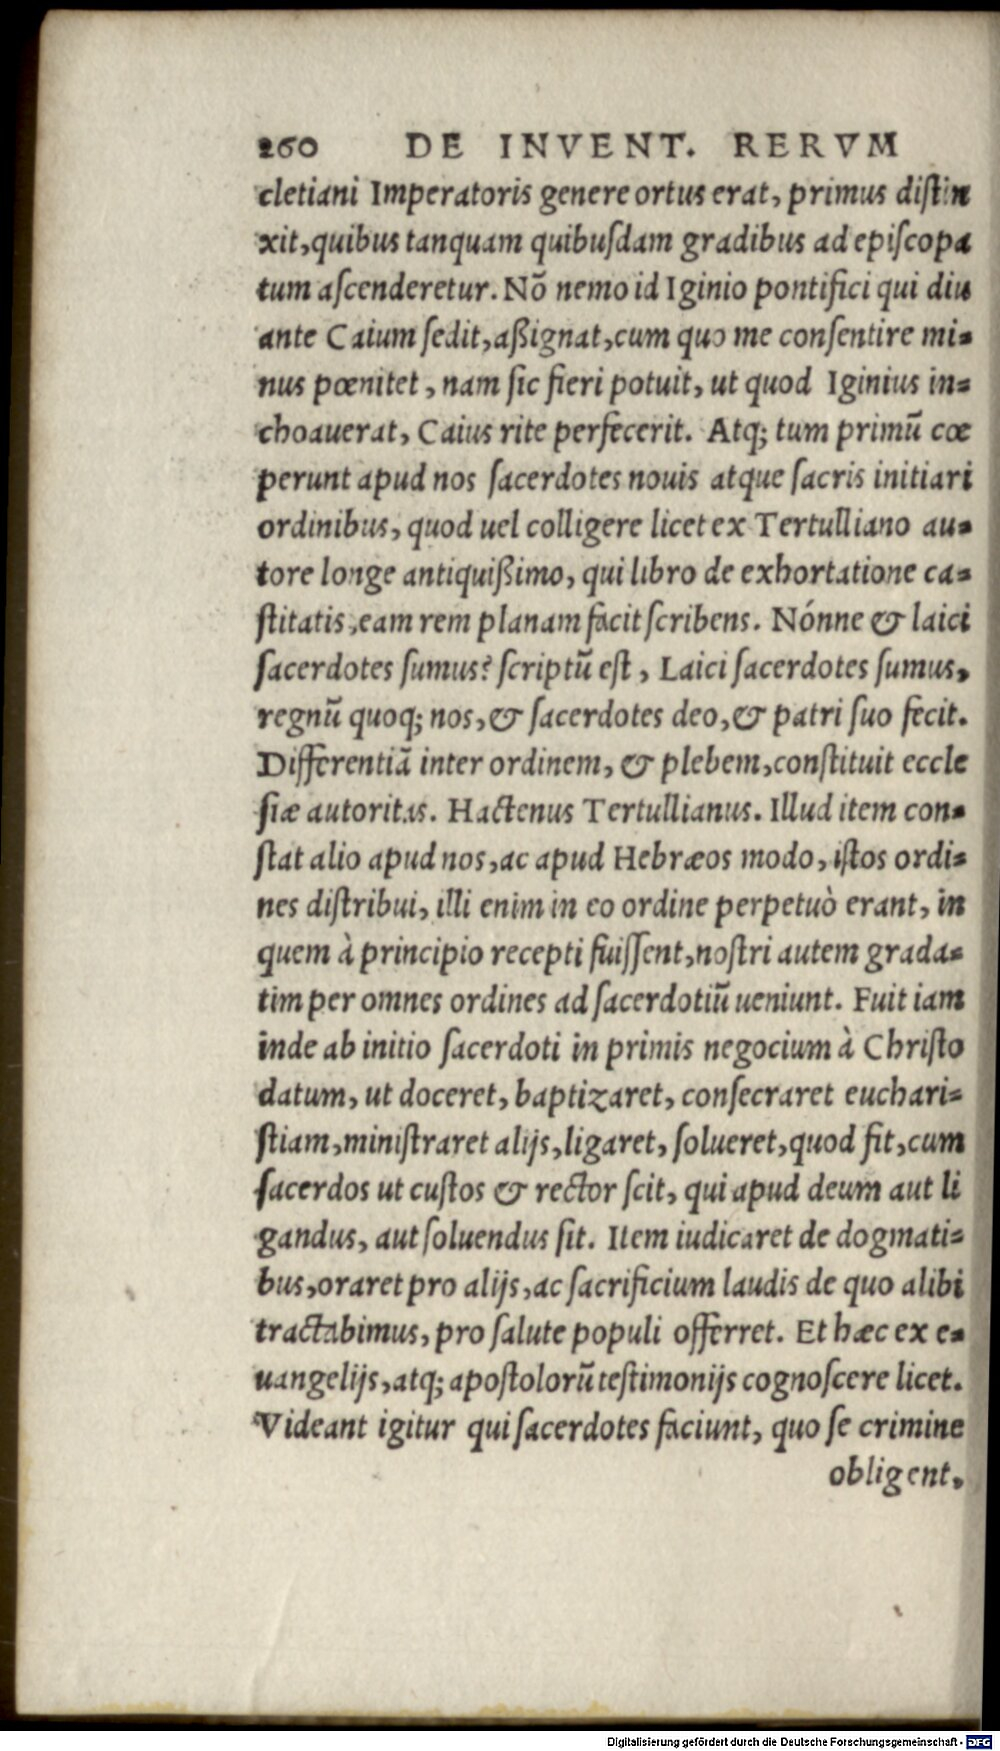 260 DE INVENT. RERVM
cletiani Imperatoris genere ortus erat, primus distin
xit, quibus tanquam quibuſdam gradibus ad epiſcopa
tum aſcenderetur. Nō nemo id Iginio pontifici qui diu
ante Caium ſedit, aßignat, cum quo me conſentire mi=
nus pœnitet, nam ſic fieri potuit, ut quod Iginius in=
choauerat, Caius rite perfecerit. Atq; tum primū cœ
perunt apud nos ſacerdotes nouis atque ſacris initiari
ordinibus, quod uel colligere licet ex Tertulliano au=
tore longe antiquißimo, qui libro de exhortatione ca=
ſtitatis, eam rem planam facit ſcribens. Nónne & laici
ſacerdotes ſumus? ſcriptū eſt, Laici ſacerdotes ſumus,
regnū quoq; nos, & ſacerdotes deo, & patri ſuo fecit.
Differentiā inter ordinem, & plebem, conſtituit eccle
ſiæ autoritas. Hactenus Tertullianus. Illud item con=
ſtat alio apud nos, ac apud Hebræos modo, iſtos ordi=
nes diſtribui, illi enim in eo ordine perpetuò erant, in
quem à principio recepti fuiſſent, noſtri autem grada=
tim per omnes ordines ad ſacerdotiū ueniunt. Fuit iam
inde ab initio ſacerdoti in primis negocium à Chriſto
datum, ut doceret, baptizaret, conſecraret euchari=
ſtiam, miniſtraret alijs, ligaret, ſolueret, quod fit, cum
ſacerdos ut cuſtos & rector ſcit, qui apud deum aut li
gandus, aut ſoluendus ſit. Item iudicaret de dogmati=
bus, oraret pro alijs, ac ſacrificium laudis de quo alibi
tractabimus, pro ſalute populi offerret. Et hæc ex e=
uangelijs, atq; apoſtolorū teſtimonijs cognoſcere licet.
Videant igitur qui ſacerdotes faciunt, quo ſe crimine
obligent,
Digitalisierung gefördert durch die Deutsche Forschungsgemeinschaft - DFG